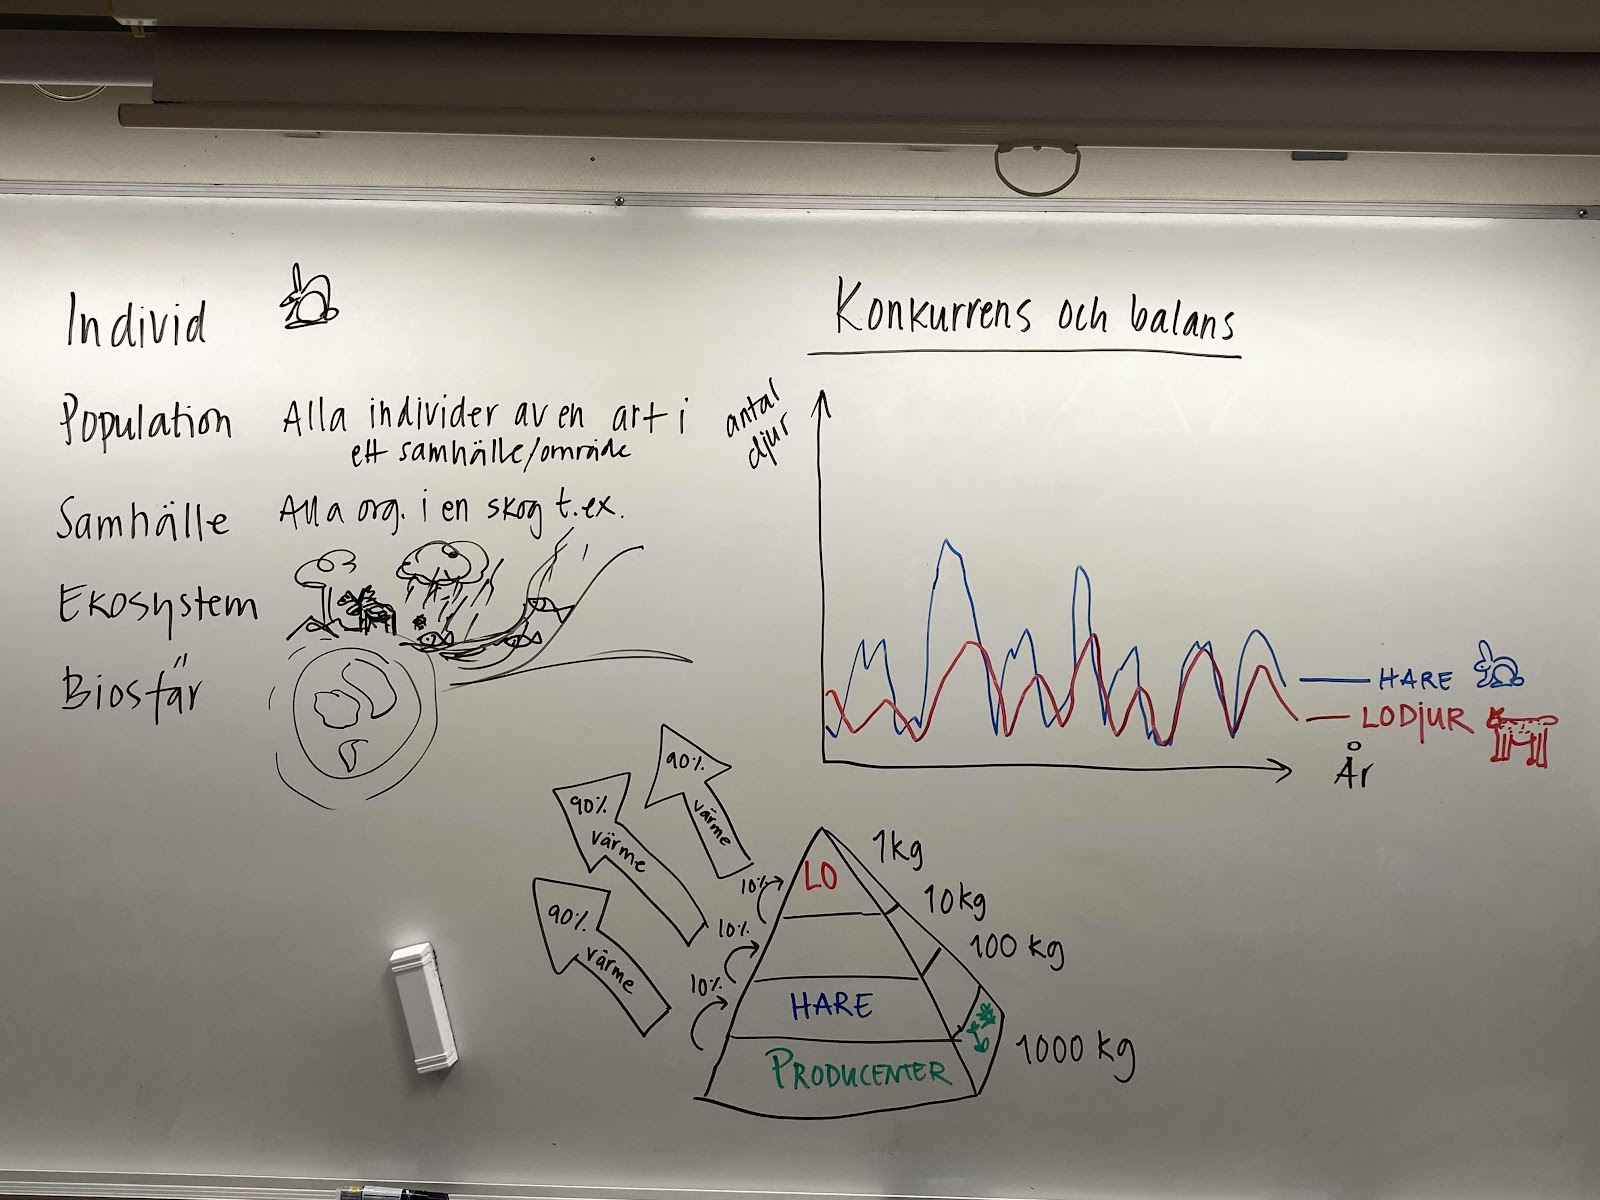 Individ
Population Alla individer av en art i
ett samhälle/område
Samhälle Alla org. i en skog t.ex.
Ekosystem
Biosfär
Konkurrens och balans
antal
djur
HARE
LODJUR
År
90%
värme
90%
värme
90%
värme
10%
10%
10%
LO
HARE
PRODUCENTER
1kg
10kg
100 kg
1000 kg